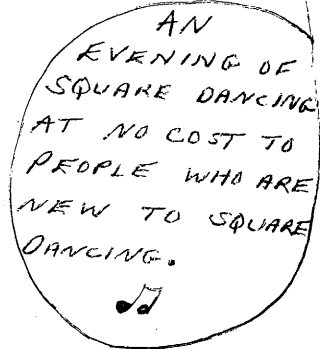 AN
EVENING OF
SQUARE DANCING
AT NO COST TO
PEOPLE WHO ARE
NEW TO SQUARE
DANCING.